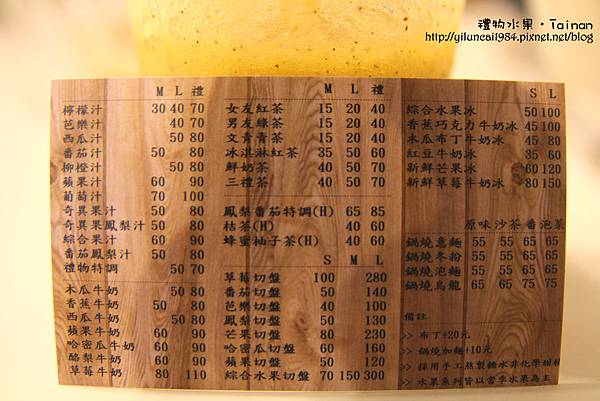 禮物水果·Tainan
http://yiluncai1984.pixnet.net/blog
M L 禮
檸檬汁 30 40 70
芭樂汁 40 70
西瓜汁 50 80
番茄汁 50 80
柳橙汁 50 80
蘋果汁 60 90
葡萄汁 70 100
奇異果汁 50 80
奇異果鳳梨汁 50 80
綜合果汁 60 90
番茄鳳梨汁 50 80
禮物特調 50 70
木瓜牛奶 50 80
香蕉牛奶 50 80
西瓜牛奶 50 80
蘋果牛奶 60 90
哈密瓜牛奶 60 90
酪梨牛奶 60 90
草莓牛奶 80 110
M L 禮
女友紅茶 15 20 40
男友綠茶 15 20 40
文青青茶 15 20 40
冰淇淋紅茶 35 50 60
鮮奶茶 40 50 70
三禮茶 40 50 70
鳳梨番茄特調(H) 65 85
桔茶(H) 40 60
蜂蜜柚子茶(H) 40 60
S M L
草莓切盤 100 280
番茄切盤 50 140
芭樂切盤 40 100
鳳梨切盤 50 130
芒果切盤 80 230
哈密瓜切盤 60 160
蘋果切盤 50 120
綜合水果切盤 70 150 300
S L
綜合水果冰 50 100
香蕉巧克力牛奶冰 45 100
木瓜布丁牛奶冰 45 80
紅豆牛奶冰 35 60
新鮮芒果冰 60 120
新鮮草莓牛奶冰 80 150
原味 沙茶 番泡菜
鍋燒意麵 55 55 65 65
鍋燒冬粉 55 55 65 65
鍋燒泡麵 55 55 65 65
鍋燒烏龍 65 65 75 75
備註
>> 布丁+20元
>> 鍋燒加麵+10元
>> 採用手工熬製糖水非化學甜精
>> 水果系列皆以當季水果為主